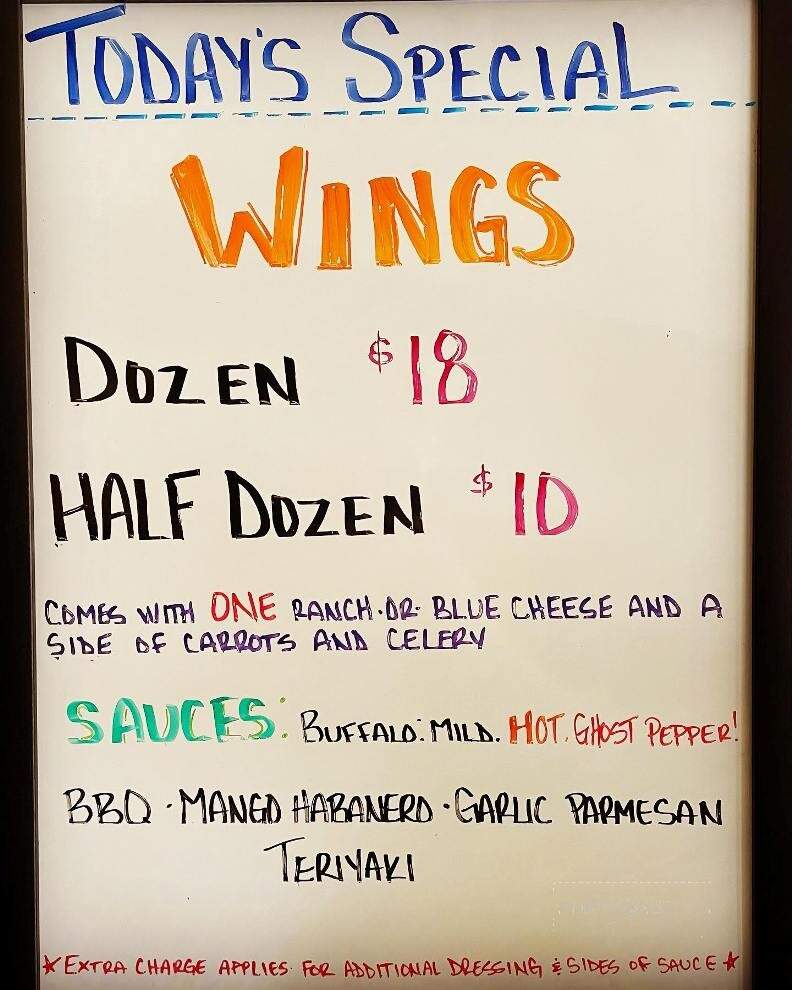 TODAY'S SPECIAL
WINGS
DOZEN $18
HALF DOZEN $10
COMES WITH ONE RANCH·OR·BLUE CHEESE AND A
SIDE OF CARROTS AND CELERY
SAUCES: BUFFALO: MILD. HOT. GHOST PEPPER!
BBQ · MANGO HABANERO · GARLIC PARMESAN
TERIYAKI
★ EXTRA CHARGE APPLIES FOR ADDITIONAL DRESSING & SIDES OF SAUCE ★